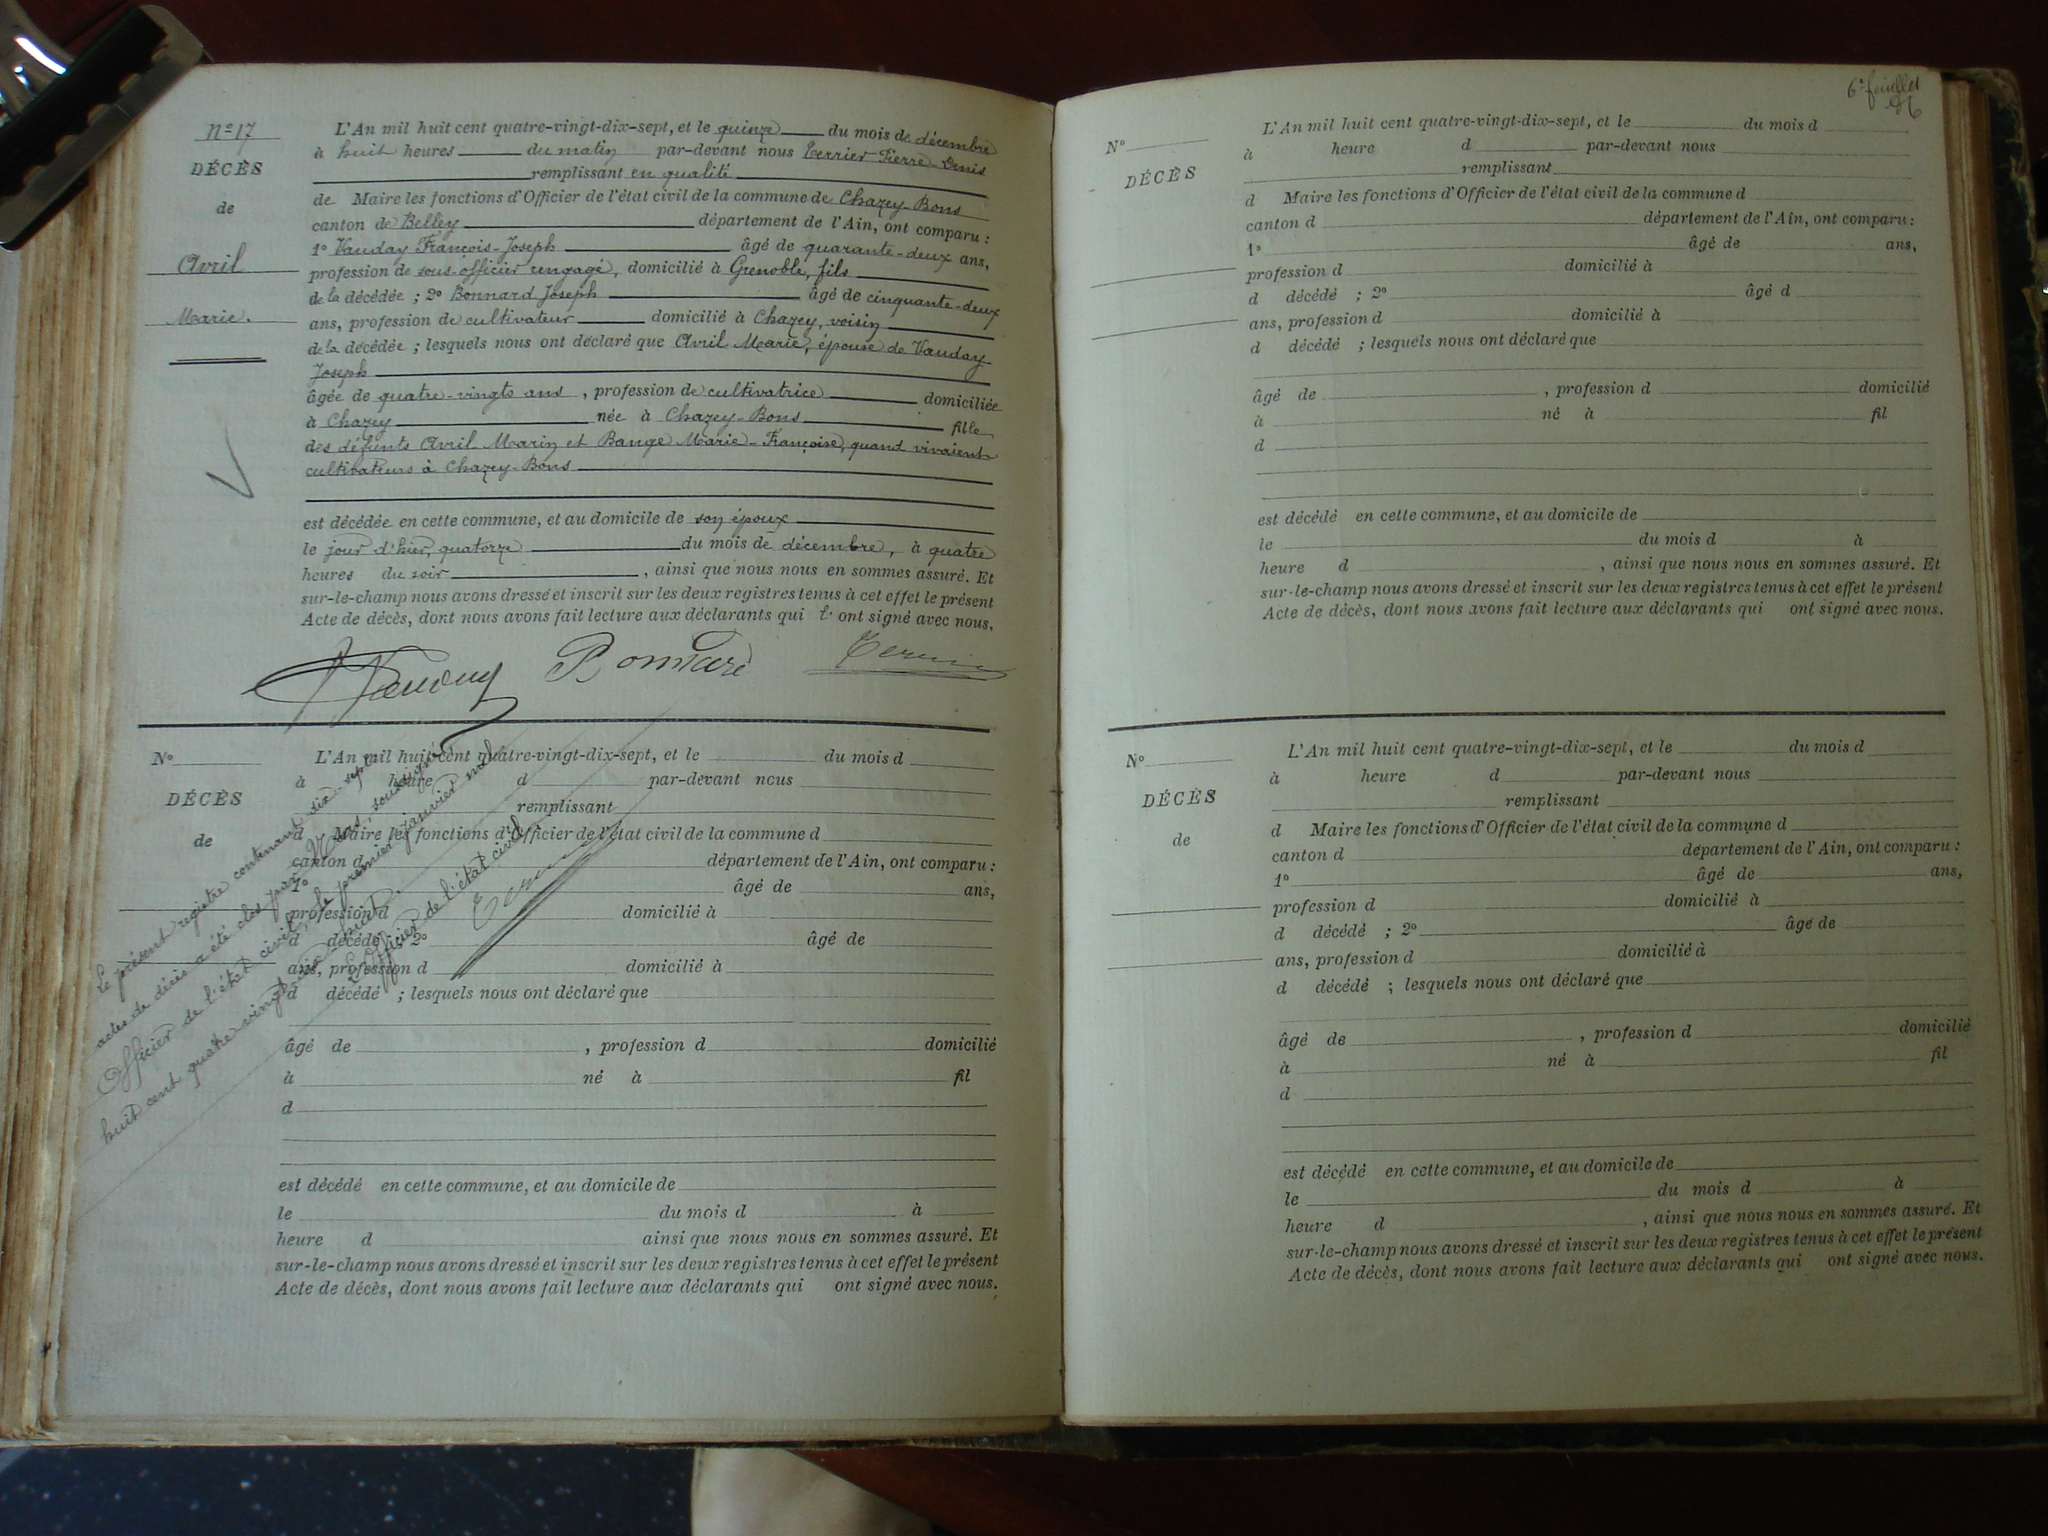 Nº 17
DÉCÈS
de
Avril
Marie.
L'An mil huit cent quatre-vingt-dix-sept, et le quinze du mois de décembre
à huit heures du matin par-devant nous Terrier Pierre-Denis
remplissant en qualité
de Maire les fonctions d'Officier de l'état civil de la commune de Chazey Bons
canton de Belley département de l'Ain, ont comparu :
1º Vauday François-Joseph âgé de quarante-deux ans,
profession de sous-officier rengagé, domicilié à Grenoble, fils
de la décédée ; 2º Bonnard Joseph âgé de cinquante-deux
ans, profession de cultivateur domicilié à Chazey, voisin
de la décédée ; lesquels nous ont déclaré que Avril Marie, épouse de Vauday
Joseph
âgée de quatre-vingts ans , profession de cultivatrice domiciliée
à Chazey née à Chazey-Bons fille
des défunts Avril Marin et Bange Marie-Françoise, quand vivaient
cultivateurs à Chazey-Bons
est décédée en cette commune, et au domicile de son époux
le jour d'hier, quatorze du mois de décembre, à quatre
heures du soir , ainsi que nous nous en sommes assuré. Et
sur-le-champ nous avons dressé et inscrit sur les deux registres tenus à cet effet le présent
Acte de décès, dont nous avons fait lecture aux déclarants qui l' ont signé avec nous.
Vauday Bonnard Terrier
Nº
DÉCÈS
de
L'An mil huit cent quatre-vingt-dix-sept, et le du mois d
à heure d par-devant nous
remplissant
d Maire les fonctions d'Officier de l'état civil de la commune d
canton d département de l'Ain, ont comparu :
1º âgé de ans,
profession d domicilié à
d décédé ; 2º âgé de
ans, profession d domicilié à
d décédé ; lesquels nous ont déclaré que
âgé de , profession d domicilié
à né à fil
d
est décédé en cette commune, et au domicile de
le du mois d à
heure d ainsi que nous nous en sommes assuré. Et
sur-le-champ nous avons dressé et inscrit sur les deux registres tenus à cet effet le présent
Acte de décès, dont nous avons fait lecture aux déclarants qui ont signé avec nous.
Le présent registre contenant dix-sept
actes de décès a été clos par Nous, soussigné
Officier de l'état civil, le premier janvier mil
huit cent quatre vingt-dix-huit.
L'Officier de l'état civil
Terrier
6e feuillet
Nº
DÉCÈS
L'An mil huit cent quatre-vingt-dix-sept, et le du mois d
à heure d par-devant nous
remplissant
d Maire les fonctions d'Officier de l'état civil de la commune d
canton d département de l'Ain, ont comparu :
1º âgé de ans,
profession d domicilié à
d décédé ; 2º âgé d
ans, profession d domicilié à
d décédé ; lesquels nous ont déclaré que
âgé de , profession d domicilié
à né à fil
d
est décédé en cette commune, et au domicile de
le du mois d à
heure d , ainsi que nous nous en sommes assuré. Et
sur-le-champ nous avons dressé et inscrit sur les deux registres tenus à cet effet le présent
Acte de décès, dont nous avons fait lecture aux déclarants qui ont signé avec nous.
Nº
DÉCÈS
de
L'An mil huit cent quatre-vingt-dix-sept, et le du mois d
à heure d par-devant nous
remplissant
d Maire les fonctions d'Officier de l'état civil de la commune d
canton d département de l'Ain, ont comparu :
1º âgé de ans,
profession d domicilié à
d décédé ; 2º âgé de
ans, profession d domicilié à
d décédé ; lesquels nous ont déclaré que
âgé de , profession d domicilié
à né à fil
d
est décédé en cette commune, et au domicile de
le du mois d à
heure d , ainsi que nous nous en sommes assuré. Et
sur-le-champ nous avons dressé et inscrit sur les deux registres tenus à cet effet le présent
Acte de décès, dont nous avons fait lecture aux déclarants qui ont signé avec nous.